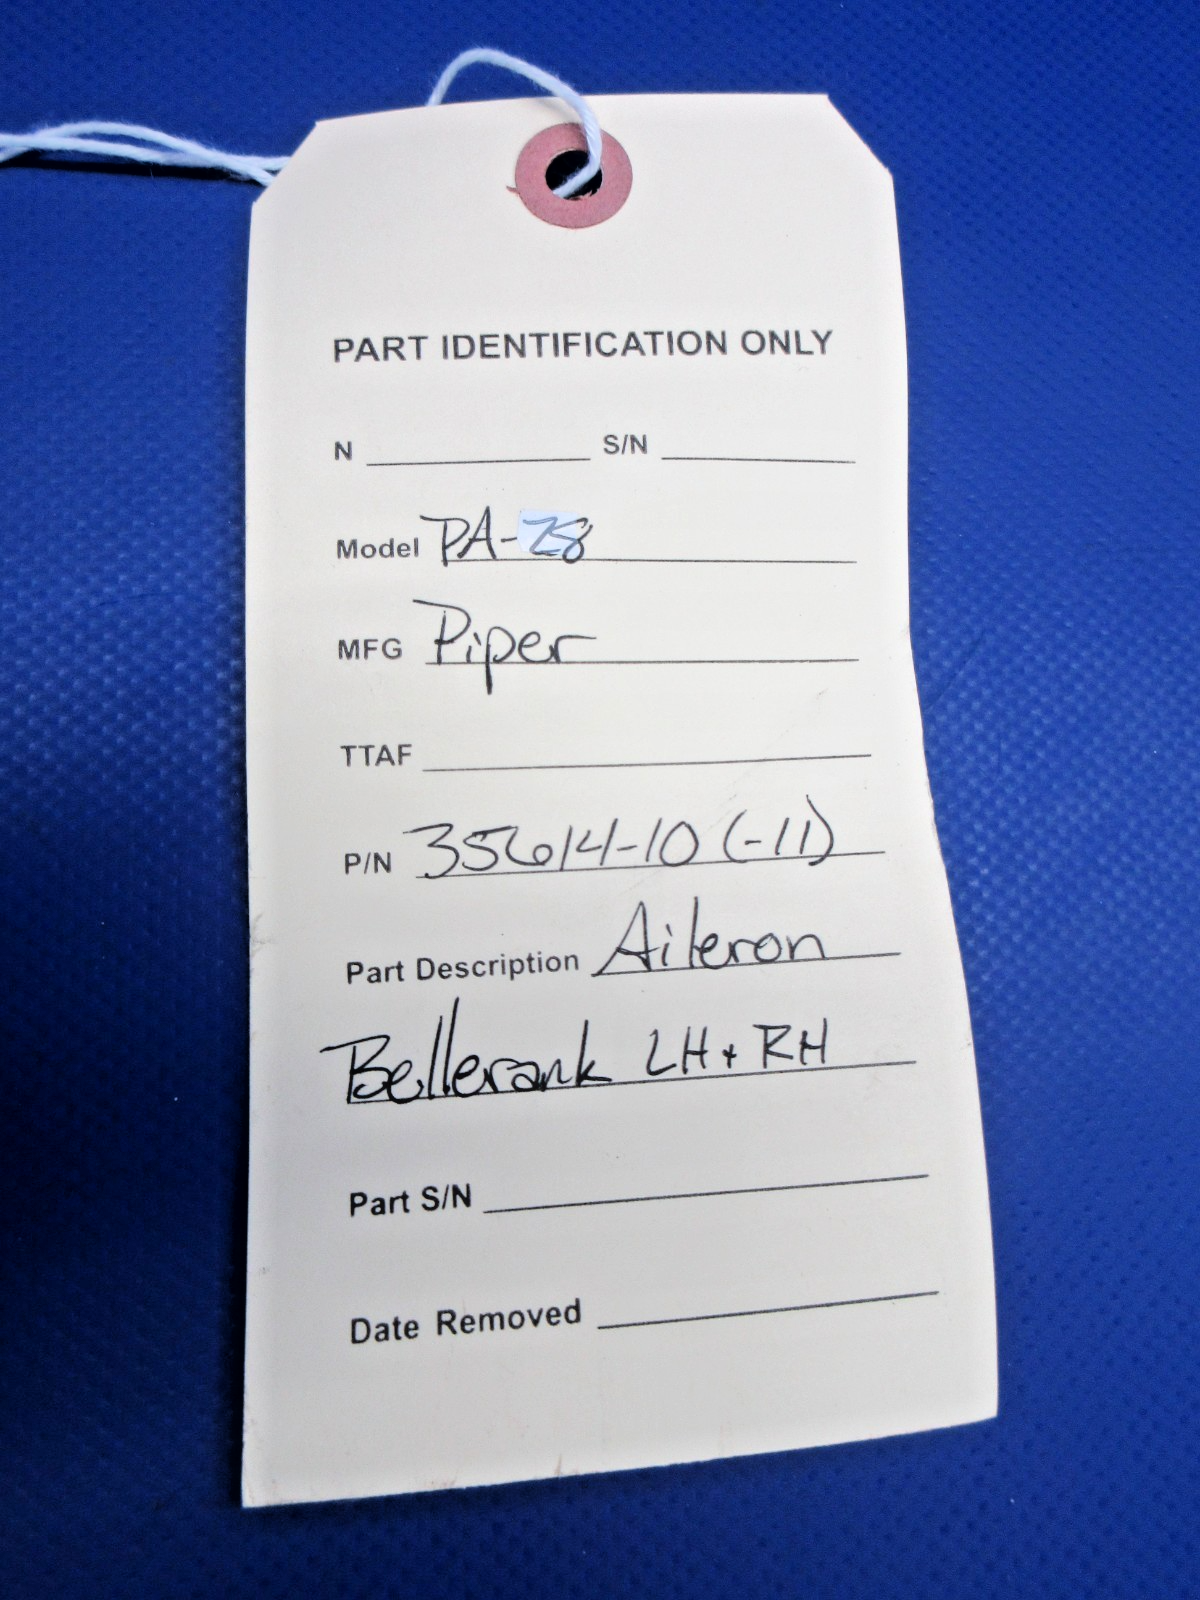 PART IDENTIFICATION ONLY
N S/N
Model PA-28
MFG Piper
TTAF
P/N 35614-10 (-11)
Part Description Aileron
Bellcrank LH + RH
Part S/N
Date Removed